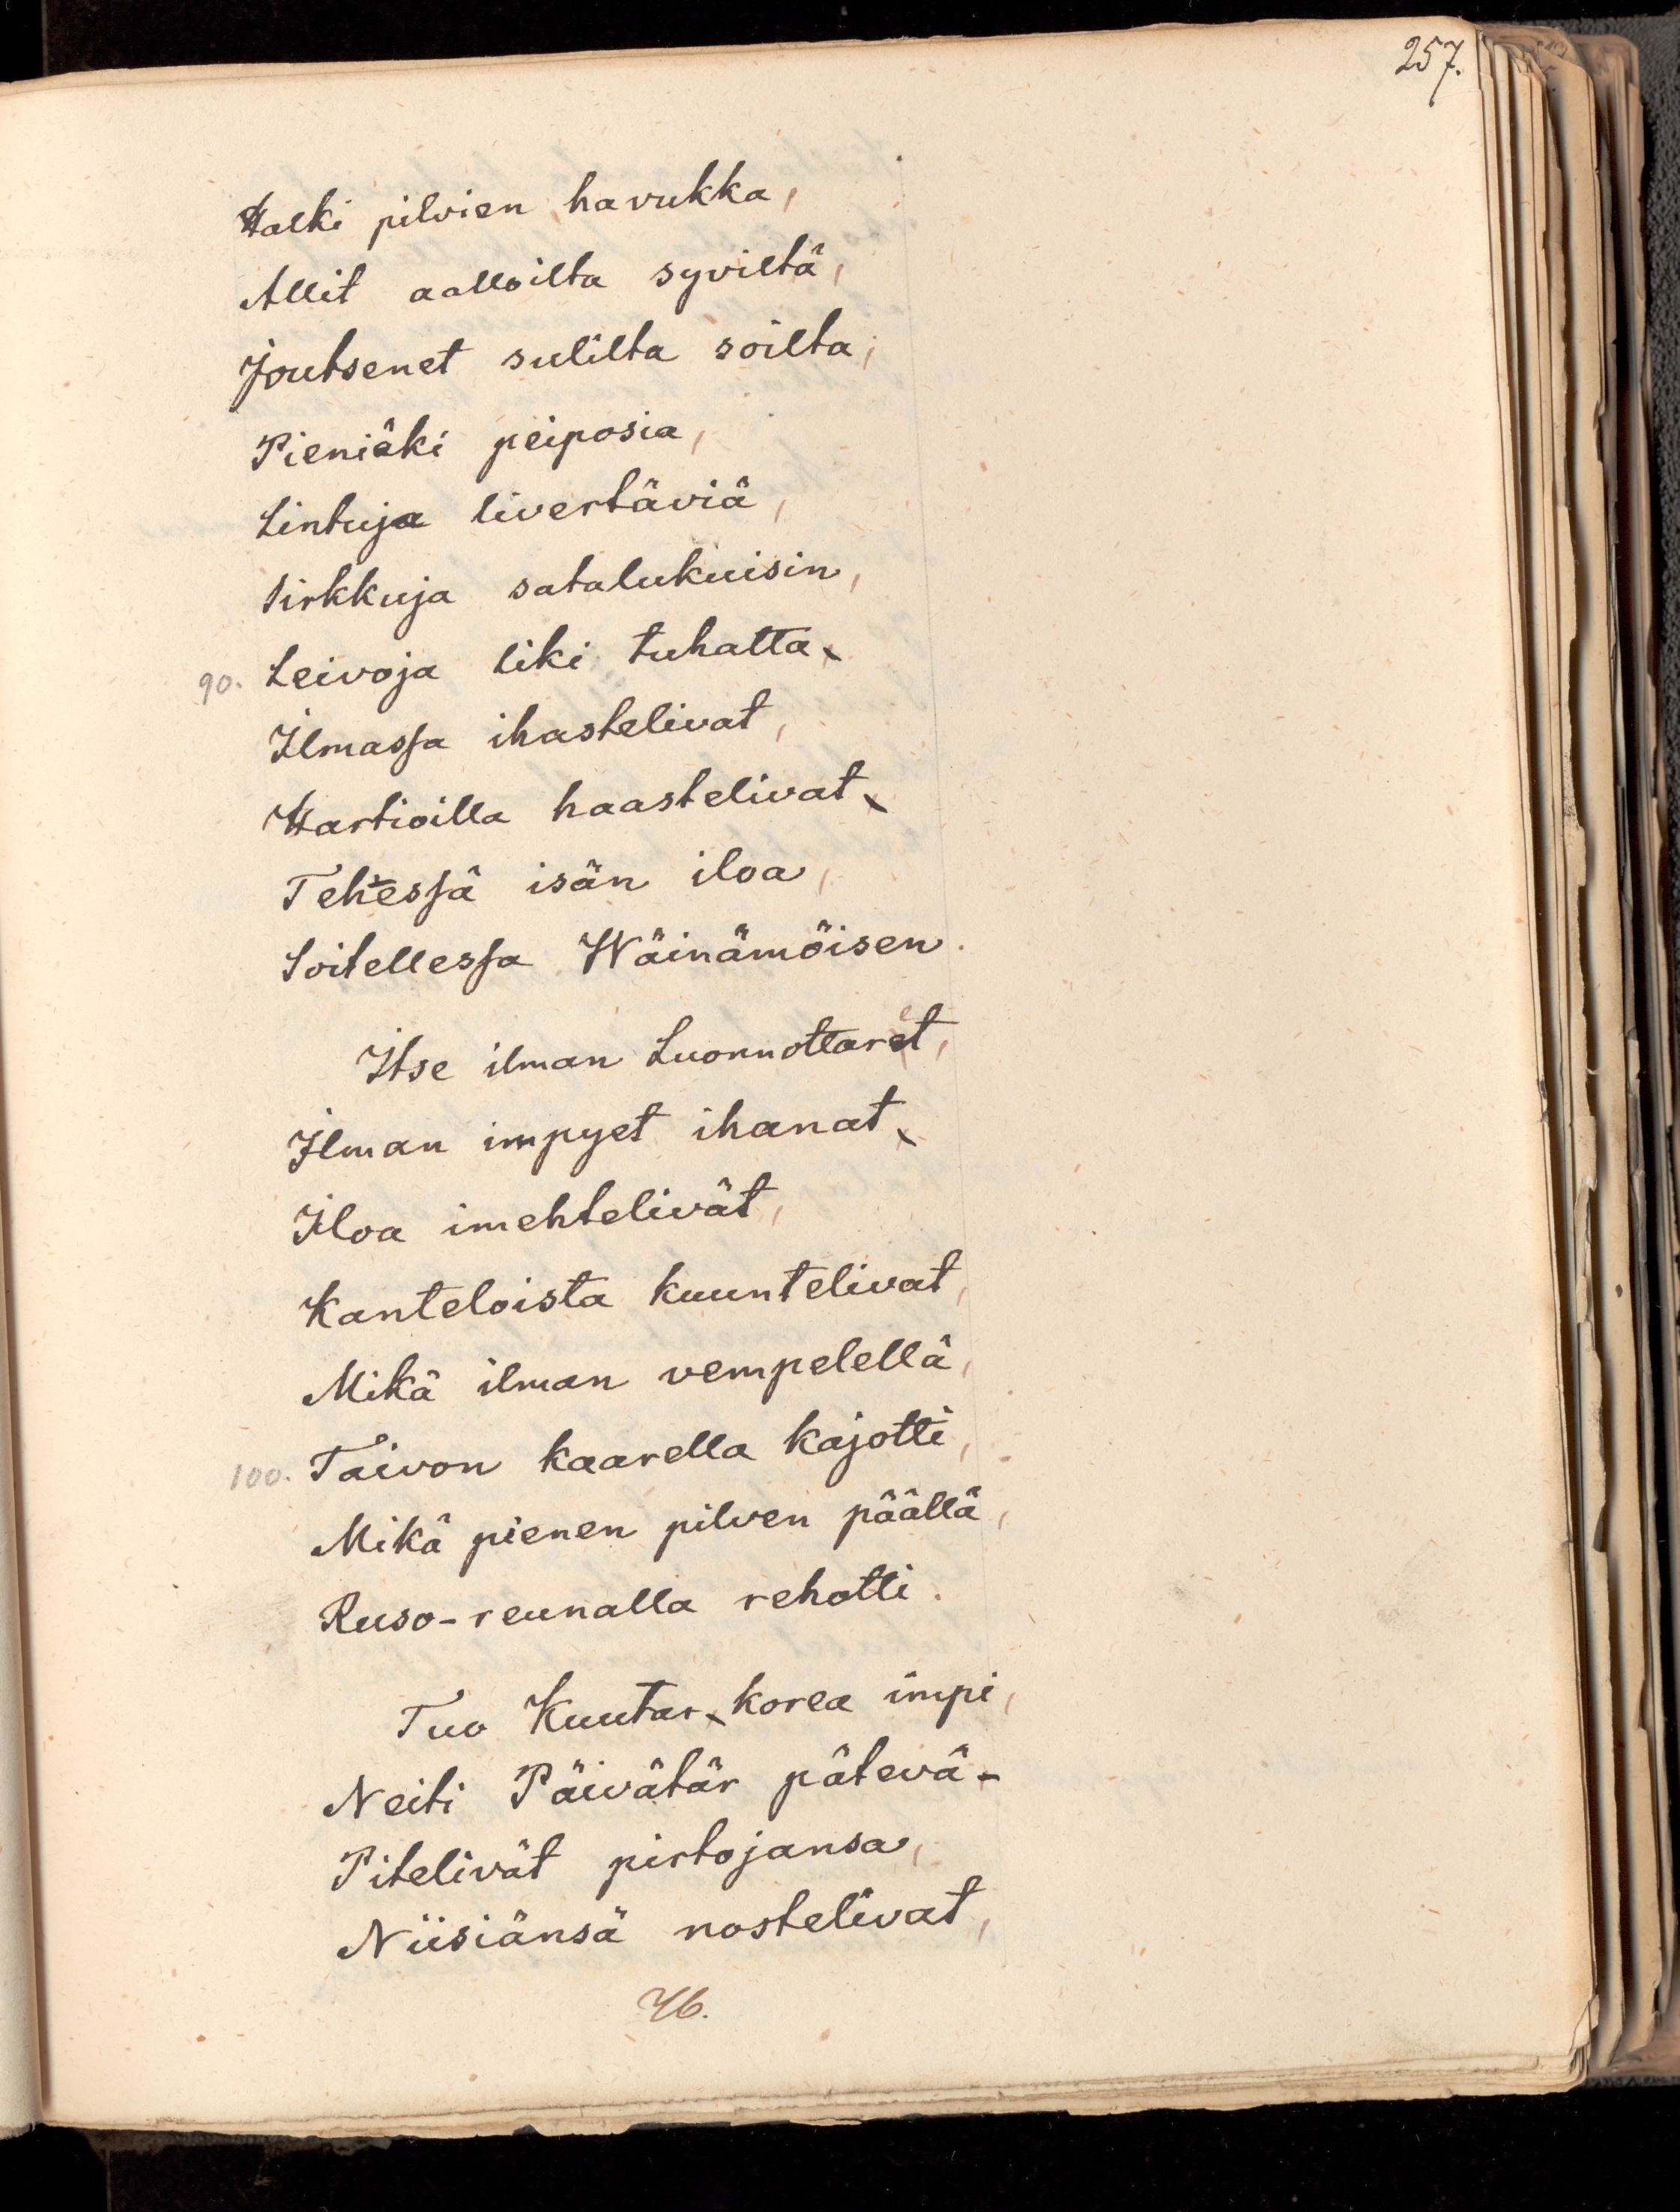 257.
Halki pilvien havukka,
Allit aalloilta syviltä,
Joutsenet sulilta soilta;
Pieniäki peiposia,
Lintuja livertäviä,
Sirkkuja satalukuisin,
90. Leivoja liki tuhatta,
Ilmassa ihastelivat,
Hartioilla haastelivat,
Tehessä isän iloa,
Soitellessa Wäinämöisen.
Itse ilman Luonnottaret,
Ilman impyet ihanat,
Iloa imehtelivät,
Kanteloista kuuntelivat,
Mikä ilman vempelellä,
100. Taivon kaarella kajotti,
Mikä pienen pilven päällä,
Ruso-reunalla rehotti.
Tuo Kuutar, korea impi,
Neiti Päivätär pätevä-
Pitelivät pirtojansa,
Niisiänsä nostelivat,
46.